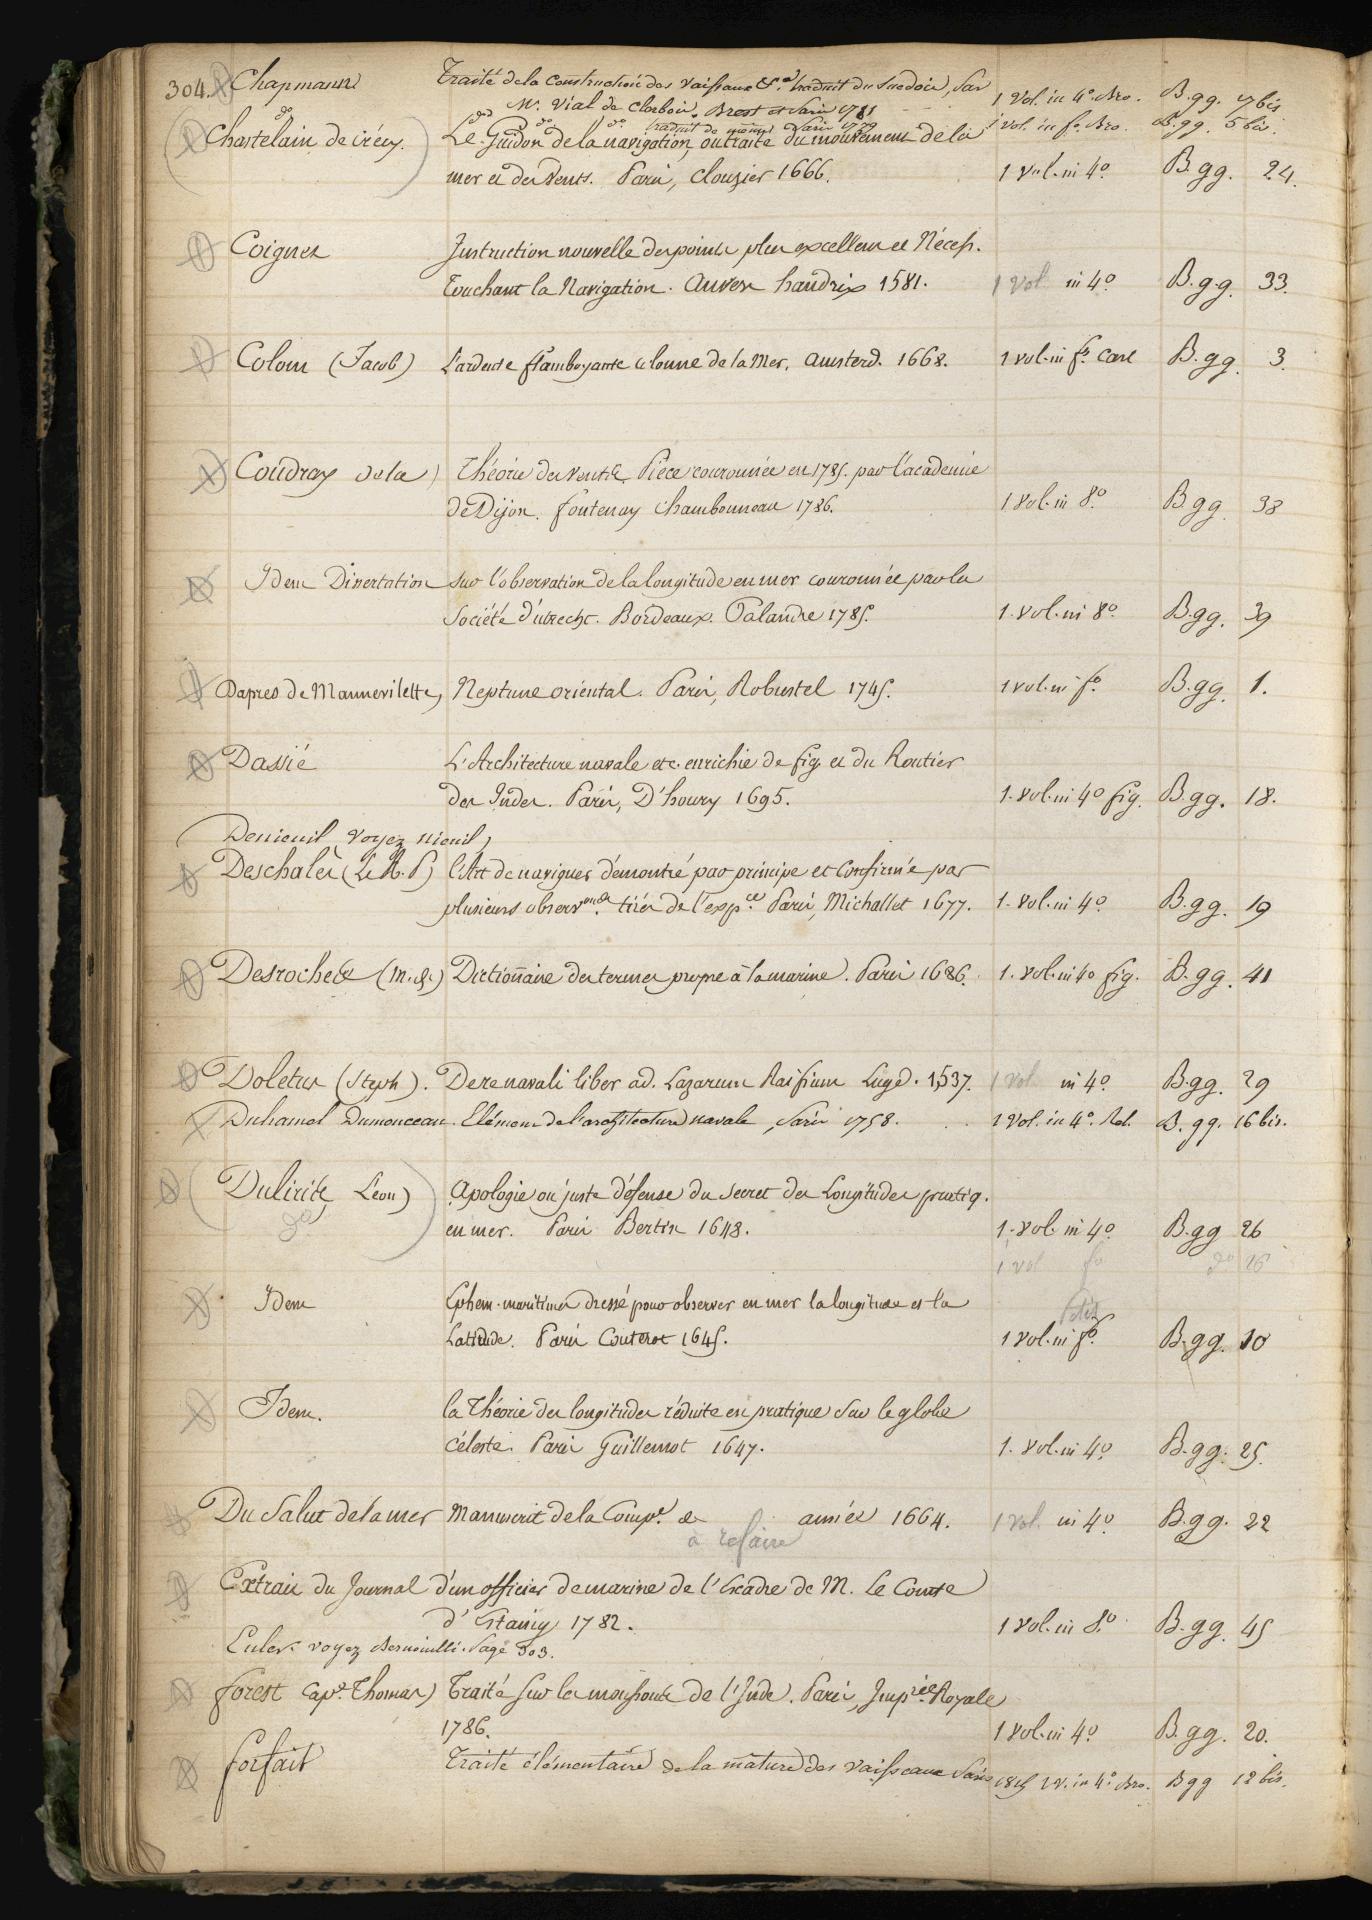 304. Chapmann Traité de la Construction des Vaisseaux &.a traduit du Suedois, par
Mr. Vial de Clerbois. Brest et Paris 1781 1 Vol. in 4.o Bro. B.gg. 7 bis
do do do do traduit de même Paris 1779 1 vol. in fo. Bro. B.gg. 5 bis.
Chastelain de irécy. Le Guidon de la navigation, ou traité du mouvement de la
mer et des vents. Paris, Clouzier 1666. 1 vol. in 4.o B.gg. 24.
Coignet Instruction nouvelle des points plus excellens et Nécess.
Touchant la Navigation. Anvers handrix 1581. 1 vol in 4.o B.gg. 33.
Colom (Jacob) l'ardente flamboyante colonne de la Mer. Amsterd. 1668. 1 vol. in fo. Cart B.gg. 3.
Coudray de la) Théorie des vents &. Pièce couronnée en 1785. par l'académie
de Dijon. fontenay Chambonneau 1786. 1 vol. in 8.o B.gg 38
Idem Dissertation sur l'observation de la longitude en mer couronnée par la
Société d'utrecht. Bordeaux. Palandre 1785. 1. vol. in 8.o B.gg. 39
Dapres de Mannevilette, Neptune oriental. Paris, Robustel 1745. 1 vol. in fo. B.gg. 1.
Dassié L'Architecture navale etc. enrichie de fig. et du Routier
des Indes. Paris, D'houry 1695. 1. vol. in 4o fig. B.gg. 18.
Denieuil, voyez nieuil,
Deschales (Le R. P) l'Art de naviguer démontré par principe et Confirmé par
plusieurs observ.ons tirés de l'exp.ce Paris, Michallet 1677. 1. vol. in 4.o B.gg. 19
Desroches (m. &.) Dictionnaire des termes propre à la marine. Paris 1686. 1. vol. in 4o fig. B.gg. 41
Doletus (Steph). De re navali liber ad. Lazarum Baifium Lugd. 1537. 1 vol in 4.o B.gg. 29
Duhamel Dumonceau. Elémens de l'architecture navale, Paris 1758. 1 Vol. in 4.o Rel. B.gg. 16 bis.
Duliris Léon) Apologie ou juste défense du secret des Longitudes pratiq.
do en mer. Paris Bertin 1648. 1. vol. in 4.o B.gg 26
1 vol fo do 26
Idem Ephem. maritimes dressé pour observer en mer la longitude et la
Latitude. Paris Couterot 1645. 1 vol. in fo. B.gg. 10
Idem. la Théorie des longitudes réduite en pratique sur le globe
Céleste. Paris Guillemot 1647. 1. vol. in 4.o B.gg. 25.
Du Salut de la mer Manuscrit de la Comp.e de année 1664. 1 vol. in 4.o B.gg. 22
à refaire
Extrait du Journal d'un officier de marine de l'Escadre de M. Le Comte
d'Estaing 1782. 1 vol. in 8.o B.gg. 45
Euler. voyez Bernouilli. Page 303.
forest Cap.e Thomas) Traité sur les moussons de l'Inde. Paris, Imp.rie Royale
1786. 1 vol. in 4.o B.gg. 20.
forfait Traité élémentaire de la mâture des Vaisseaux Paris 1815 1 v. in 4.o Bro. B gg 18 bis.